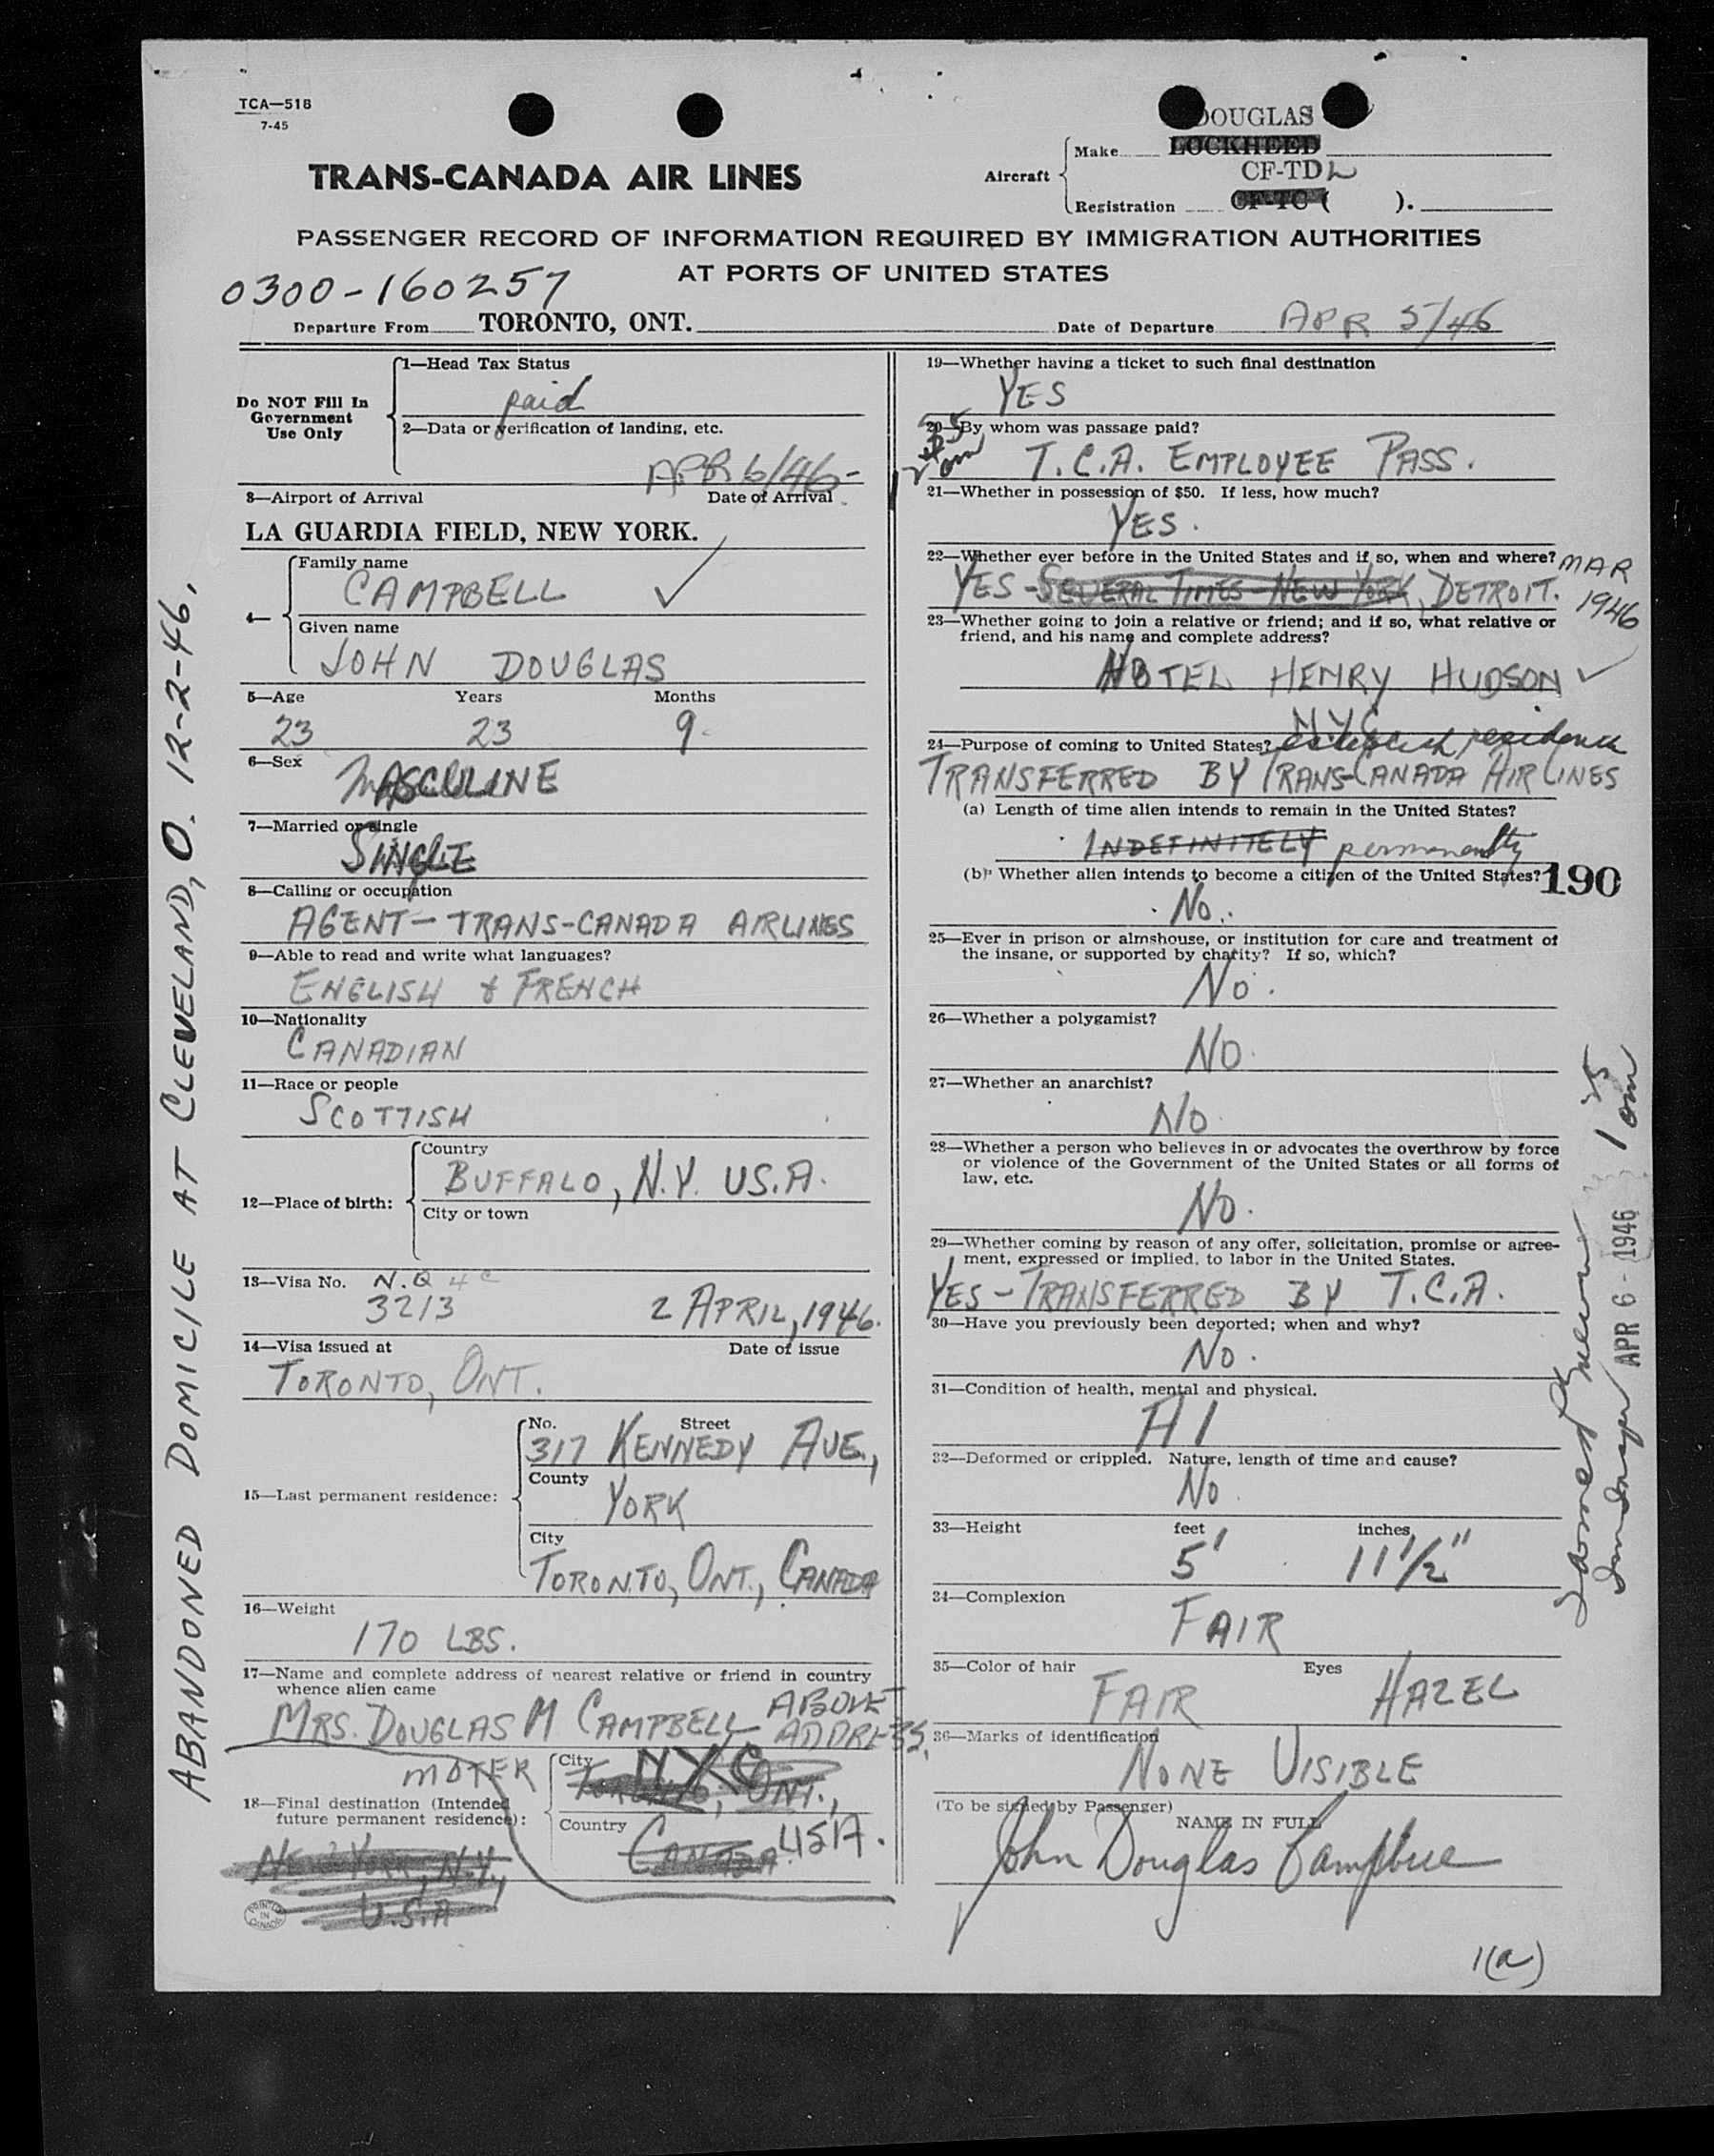 TCA—518
7-45
DOUGLAS
Make LOCKHEED
TRANS-CANADA AIR LINES
Aircraft
CF-TDL
Registration CF-TC ( ).
PASSENGER RECORD OF INFORMATION REQUIRED BY IMMIGRATION AUTHORITIES
AT PORTS OF UNITED STATES
0300-160257
Departure From TORONTO, ONT.
Date of Departure APR 5/46
Do NOT Fill In
Government
Use Only
1—Head Tax Status
paid
2—Data or verification of landing, etc.
APR 6/46-
3—Airport of Arrival
Date of Arrival
LA GUARDIA FIELD, NEW YORK.
4—
Family name
CAMPBELL
Given name
JOHN DOUGLAS
5—Age Years Months
23 23 9
6—Sex
MASCULINE
7—Married or single
SINGLE
8—Calling or occupation
AGENT - TRANS-CANADA AIRLINES
9—Able to read and write what languages?
ENGLISH & FRENCH
10—Nationality
CANADIAN
11—Race or people
SCOTTISH
12—Place of birth:
Country
BUFFALO, N.Y. U.S.A.
City or town
13—Visa No. N.Q 4c
3213 2 APRIL, 1946.
14—Visa issued at
Date of issue
TORONTO, ONT.
15—Last permanent residence:
No. Street
317 KENNEDY AVE.,
County
YORK
City
TORONTO, ONT., CANADA
16—Weight
170 LBS.
17—Name and complete address of nearest relative or friend in country
whence alien came
MRS. DOUGLAS M CAMPBELL ABOVE
ADDRESS.
MOTER
18—Final destination (Intended
future permanent residence):
City
TORONTO, ONT.,
NYC
Country
CANADA USA.
NEW YORK, N.Y.,
U.S.A
PRINTED
IN
CANADA
19—Whether having a ticket to such final destination
YES
20—By whom was passage paid?
T.C.A. EMPLOYEE PASS.
21—Whether in possession of $50. If less, how much?
YES.
22—Whether ever before in the United States and if so, when and where?
YES - SEVERAL TIMES - NEW YORK, DETROIT.
MAR
1946
23—Whether going to join a relative or friend; and if so, what relative or
friend, and his name and complete address?
HOTEL HENRY HUDSON
NYC
24—Purpose of coming to United States? establish residence
TRANSFERRED BY TRANS-CANADA AIR LINES
(a) Length of time alien intends to remain in the United States?
INDEFINITELY permanently
(b) Whether alien intends to become a citizen of the United States?
190
No.
25—Ever in prison or almshouse, or institution for care and treatment of
the insane, or supported by charity? If so, which?
No.
26—Whether a polygamist?
NO.
27—Whether an anarchist?
NO
28—Whether a person who believes in or advocates the overthrow by force
or violence of the Government of the United States or all forms of
law, etc.
NO.
29—Whether coming by reason of any offer, solicitation, promise or agree-
ment, expressed or implied, to labor in the United States.
YES - TRANSFERRED BY T.C.A.
30—Have you previously been deported; when and why?
No.
31—Condition of health, mental and physical.
A1
32—Deformed or crippled. Nature, length of time and cause?
No
33—Height feet inches
5' 11 1/2"
34—Complexion
FAIR
35—Color of hair Eyes
FAIR HAZEL
36—Marks of identification
NONE VISIBLE
(To be signed by Passenger)
NAME IN FULL
John Douglas Campbell
1(a)
ABANDONED DOMICILE AT CLEVELAND, O. 12-2-46.
APR 6 - 1946